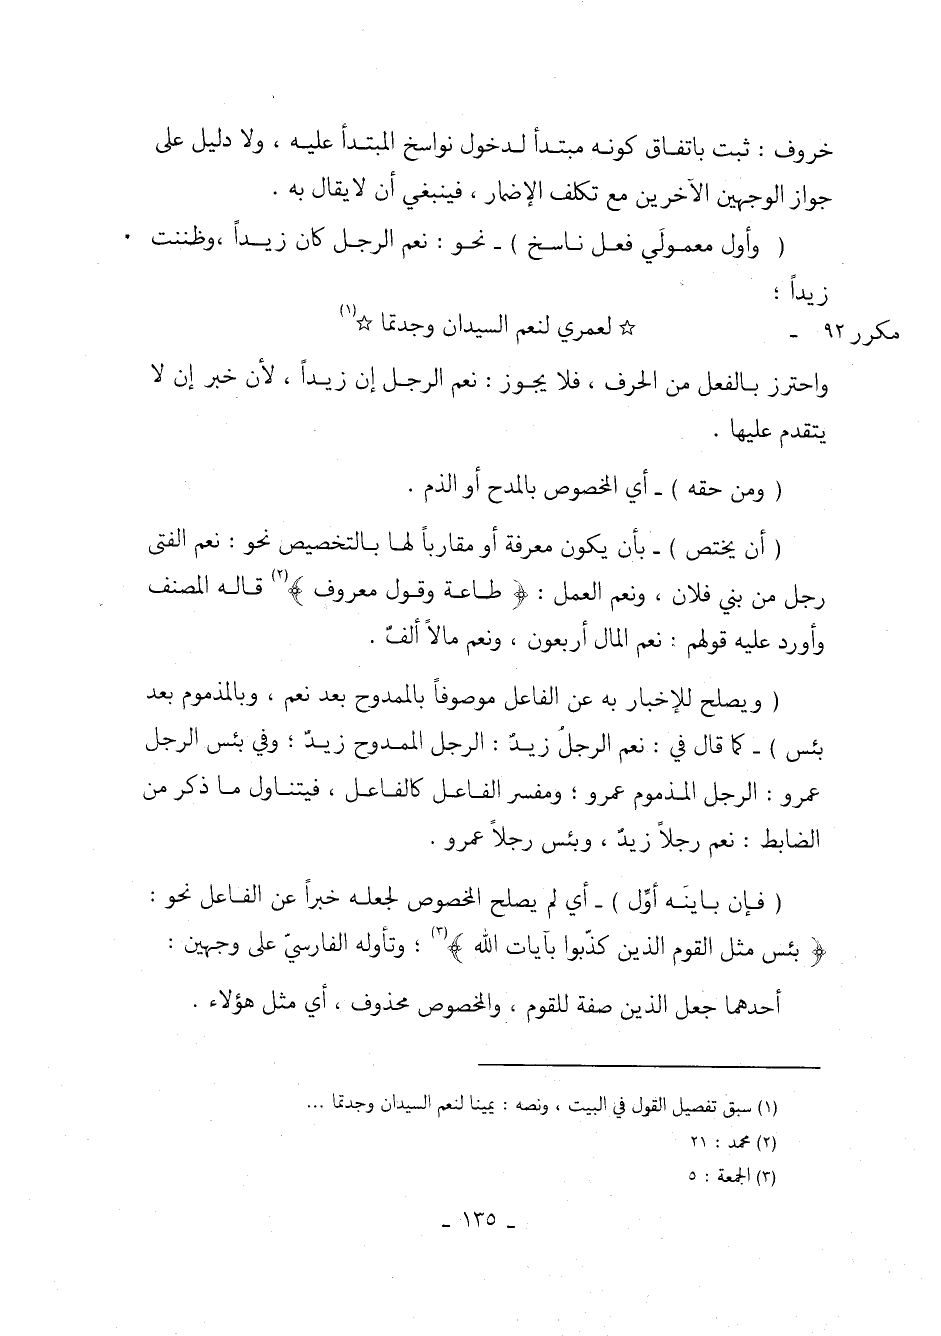 خروف : ثبت باتفاق كونه مبتدأ لدخول نواسخ المبتدأ عليه ، ولا دليل على
جواز الوجهين الآخرين مع تكلف الإضمار ، فينبغي أن لا يقال به .
( وأول معمولَي فعل ناسخ ) ـ نحو : نعم الرجل كان زيداً ، وظننت
زيداً ؛
مكرر ٩٢ ـ ☆ لعمري لنعم السيدان وجدتما ☆(١)
واحترز بالفعل من الحرف ، فلا يجوز : نعم الرجل إن زيداً ، لأن خبر إن لا
يتقدم عليها .
( ومن حقه ) ـ أي المخصوص بالمدح أو الذم .
( أن يختص ) ـ بأن يكون معرفة أو مقارباً لها بالتخصيص نحو : نعم الفتى
رجل من بني فلان ، ونعم العمل : ﴿ طاعة وقول معروف ﴾(٢) قاله المصنف
وأورد عليه قولهم : نعم المال أربعون ، ونعم مالاً ألفٌ .
( ويصلح للإخبار به عن الفاعل موصوفاً بالممدوح بعد نعم ، وبالمذموم بعد
بئس ) ـ كما قال في : نعم الرجلُ زيدٌ : الرجل الممدوح زيدٌ ؛ وفي بئس الرجل
عمرو : الرجل المذموم عمرو ؛ ومفسر الفاعل كالفاعل ، فيتناول ما ذكر من
الضابط : نعم رجلاً زيدٌ ، وبئس رجلاً عمرو .
( فإن باينَه أوِّل ) ـ أي لم يصلح المخصوص لجعله خبراً عن الفاعل نحو :
﴿ بئس مثل القوم الذين كذّبوا بآيات الله ﴾(٣) ؛ وتأوله الفارسيّ على وجهين :
أحدهما جعل الذين صفة للقوم ، والمخصوص محذوف ، أي مثل هؤلاء .
(١) سبق تفصيل القول في البيت ، ونصه : يمينا لنعم السيدان وجدتما ...
(٢) محمد : ٢١
(٣) الجمعة : ٥
ـ ١٣٥ ـ